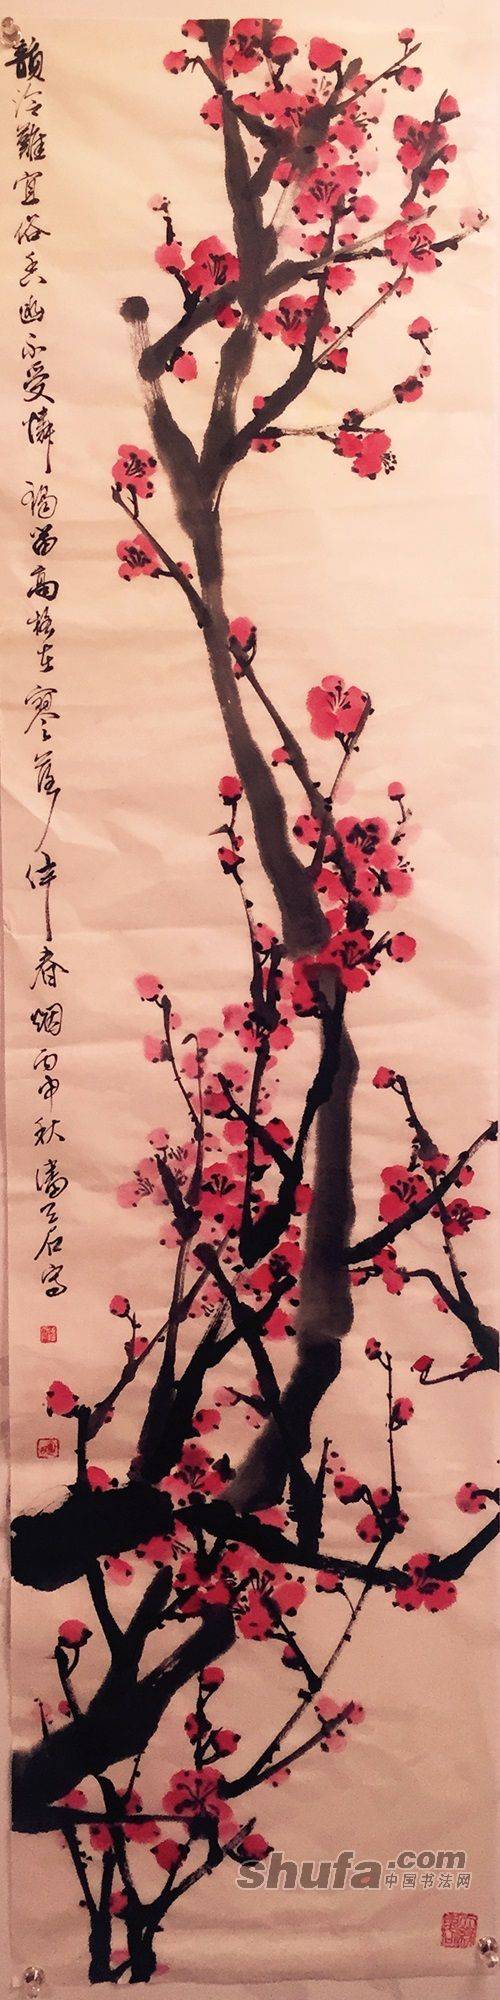 韻冷難宜俗香幽不受憐獨留高格在寥落伴春烟丙申秋潘天石寫
shufa.com
中国书法网